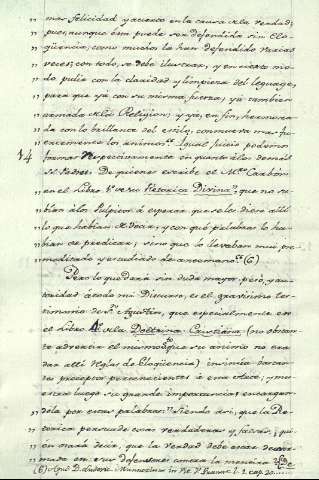 " mas felicidad y acierto en la causa de la verdad;
" pues, aunque esta puede ser defendida sin Elo-
" qüencia, como muchos la han defendido varias
" veces; con todo, se debe ilustrar, y en cierto mo-
" do pulir con la claridad y limpieza del lenguage,
" para que ya con su misma fuerza, ya tambien
" armada de la Religion, y ya, en fin, hermosea-
" da con lo brillante del estilo, conmueva mas fu-
" ertemente los animos. Igual juicio podemos
14 formar respectivamente en quanto a los demas
SS. Padres. De quienes escribe el Mro. Carbón
en el libro 1º de su Retorica Divina, que no su-
" bian a los Pulpitos á esperar que se les diera allí
" lo que habian de decir, y con qué palabras lo ha-
" bian de predicar; sino que lo llevaban muy pre-
" meditado y estudiado de antemano. (6)
Pero lo que dará sin duda mayor peso, y au-
toridad á todo mi Discurso, es el gravisimo tes-
timonio de Sn. Agustin, que especialmente en
el libro 4º de la Doctrina Cristiana (no obstan-
te advertir el mismo que su animo no era
dar allí reglas de Eloqüencia) insinúa varios
preceptos pertenecientes á esta Arte; y mu-
estra luego su grande importancia encargan-
dola por estas palabras: "Siendo asi, que la Re-
" torica persuade cosas verdaderas y falsas; ¿qui-
" en osará decir, que la verdad debe estar desar-
" mada en sus defensores contra la mentira
(6) Apud D. Ludovic.